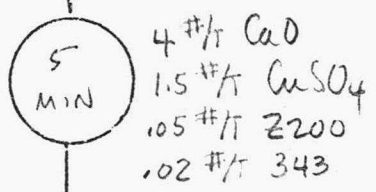 5
MIN
4 #/T CaO
1.5 #/T CuSO4
.05 #/T Z200
.02 #/T 343